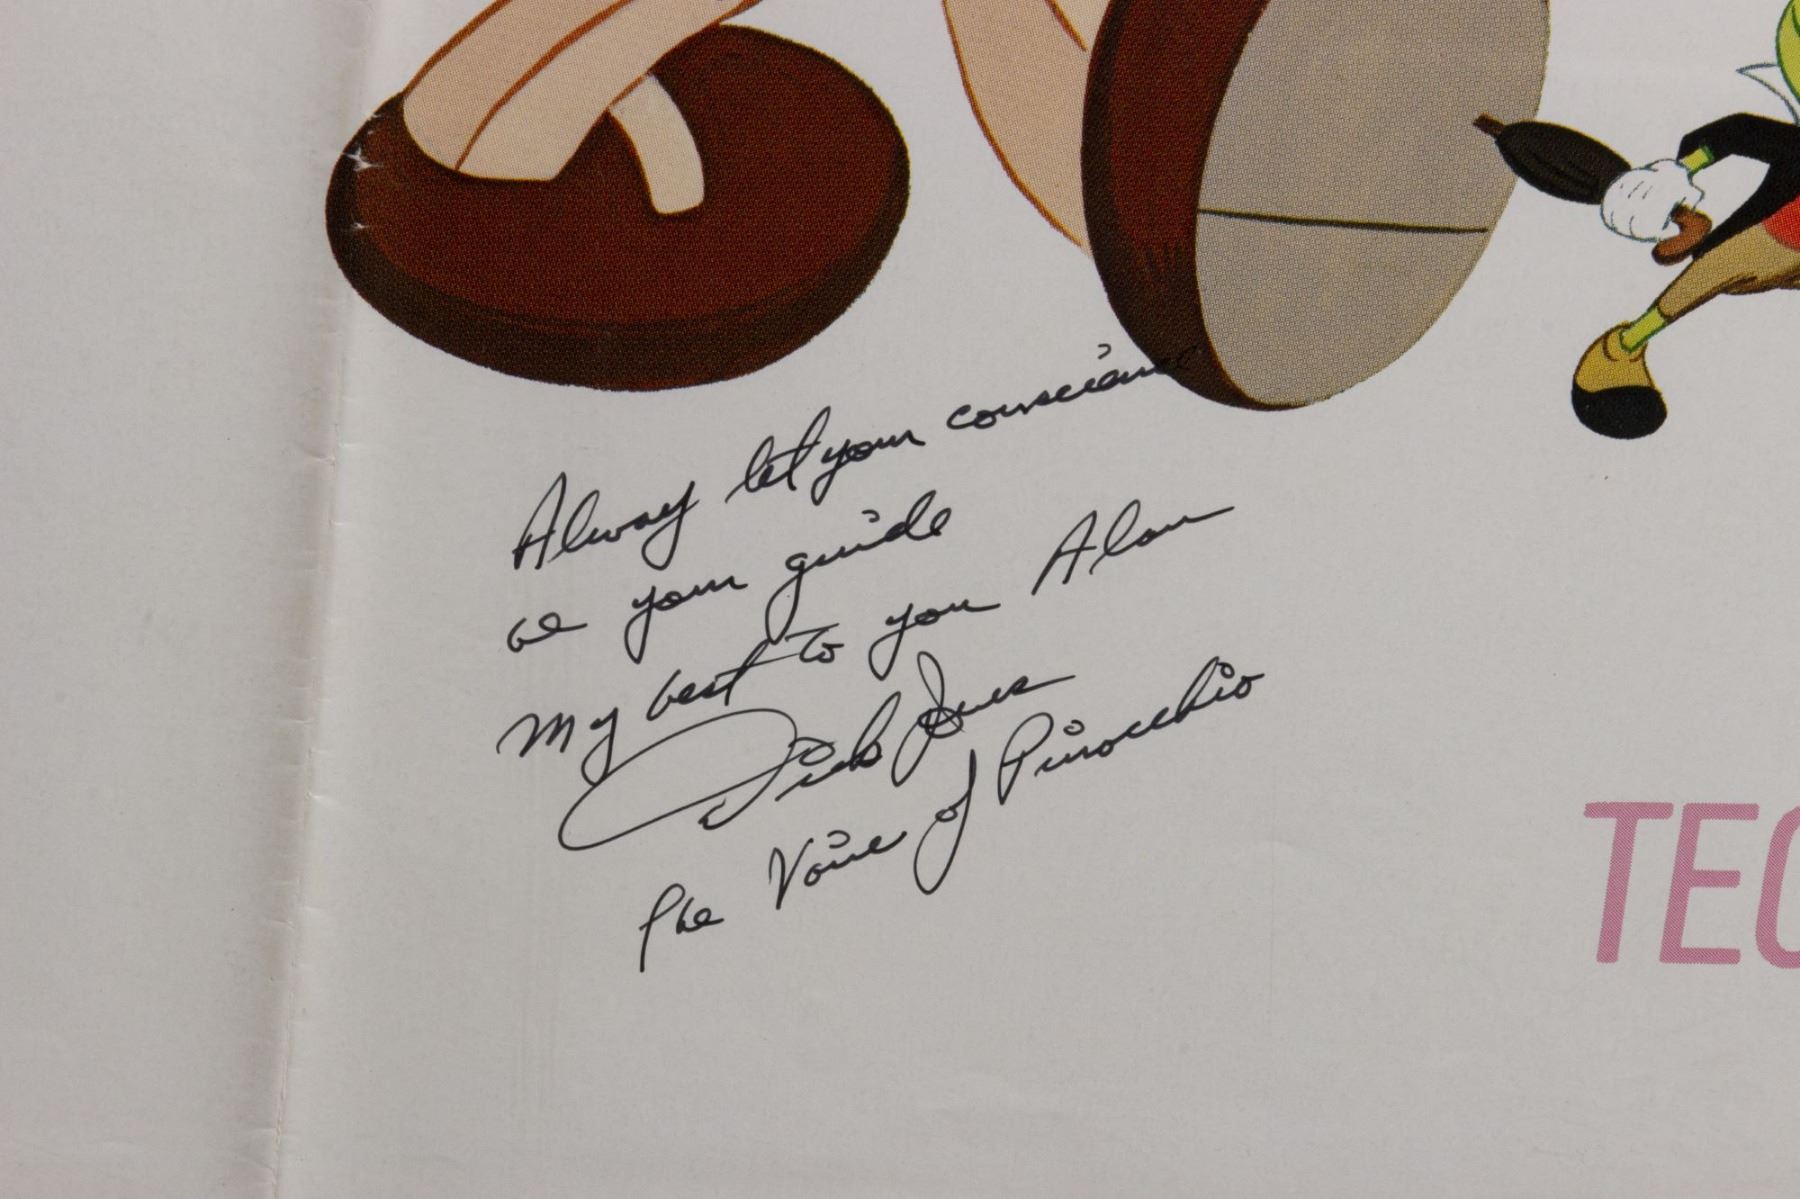 Alway let your conscience
be your guide
My best to you Alan
Dick Jones
The Voice of Pinocchio
TEC